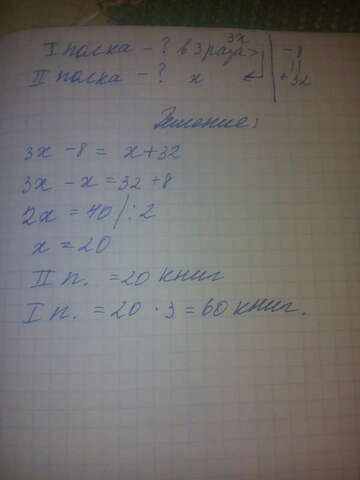 I полка - ? в 3 раза > 3x | -8
II полка - ? x | +32
Решение:
3x - 8 = x + 32
3x - x = 32 + 8
2x = 40 /:2
x = 20
II п. = 20 книг
I п. = 20 · 3 = 60 книг.